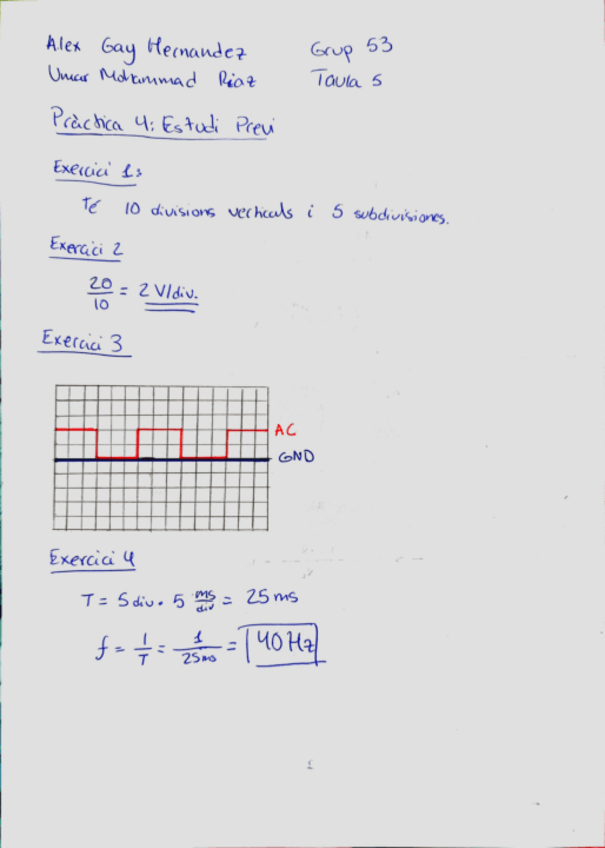 Alex Gay Hernandez Grup 53
Umar Mohammad Riaz Taula 5
Pràctica 4: Estudi Previ
Exercici 1:
Té 10 divisions verticals i 5 subdivisiones.
Exercici 2
20/10 = 2 V/div.
Exercici 3
AC
GND
Exercici 4
T = 5 div. 5 ms/div = 25 ms
f = 1/T = 1/25ms = 40 Hz